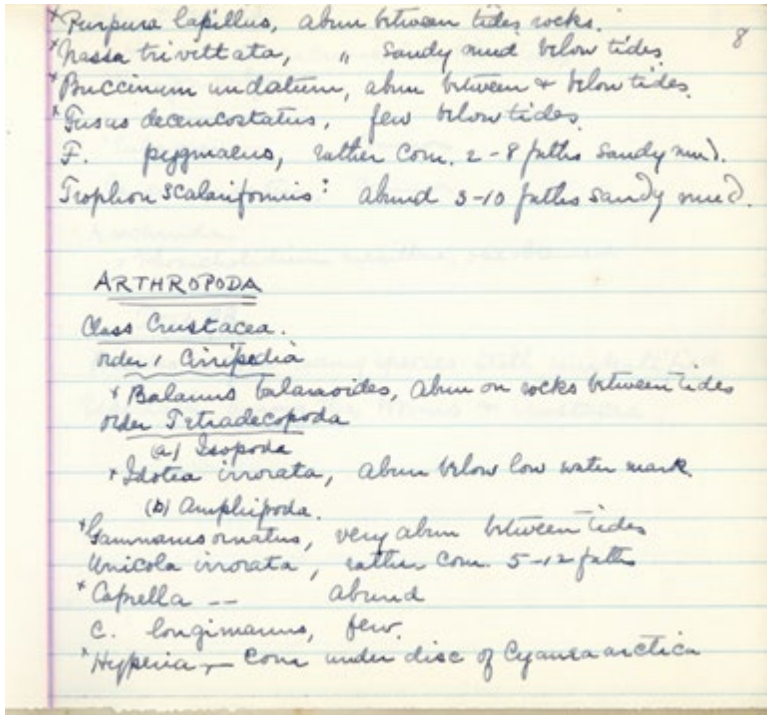 8
x Purpura lapillus, abun between tides rocks.
x Nassa trivittata, " Sandy mud below tides
x Buccinum undatum, abun between & below tides.
x Fusus decemcostatus, few below tides.
F. pygmaeus, rather com. 2-8 faths sandy mud.
Trophon scalariformis? abund 3-10 faths sandy mud.
ARTHROPODA
Class Crustacea.
Order 1 Cirripedia
x Balanus balanoides, abun on rocks between tides
Order Tetradecopoda
(a) Isopoda
x Idotea irrorata, abun below low water mark
(b) Amphipoda.
x Gammarus ornatus, very abun between tides
Unicola irrorata, rather com. 5-12 faths
x Caprella -- abund
C. longimanus, few.
x Hyperia — Com under disc of Cyanea arctica